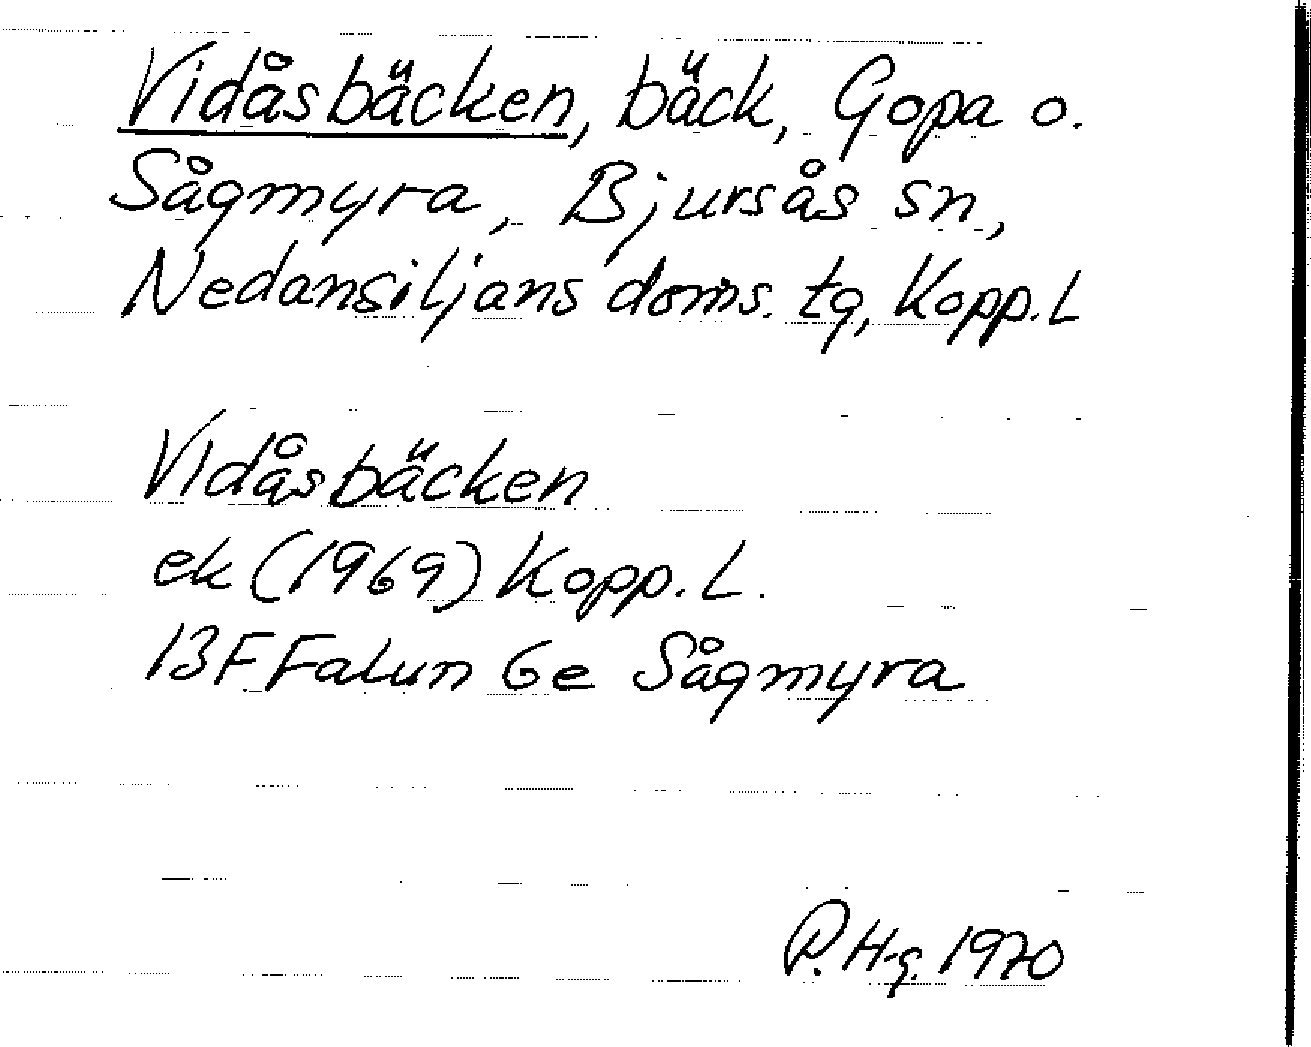 Vidåsbäcken, bäck, Gopa o.
Sågmyra, Bjursås sn,
Nedansiljans doms. tg, Kopp. L
Vidåsbäcken
ek (1969) Kopp. L.
13F Falun 6e Sågmyra
P. H-g. 1970